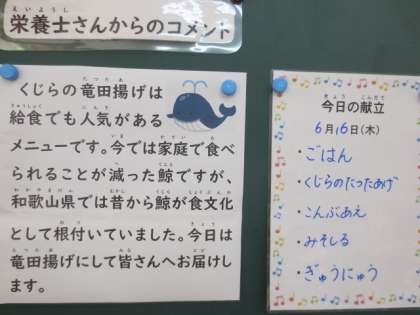 栄養士さんからのコメント
くじらの竜田揚げは
給食でも人気がある
メニューです。今では家庭で食べ
られることが減った鯨ですが、
和歌山県では昔から鯨が食文化
として根付いていました。今日は
竜田揚げにして皆さんへお届けし
ます。
今日の献立
6月16日(木)
・ごはん
・くじらのたつたあげ
・こんぶあえ
・みそしる
・ぎゅうにゅう